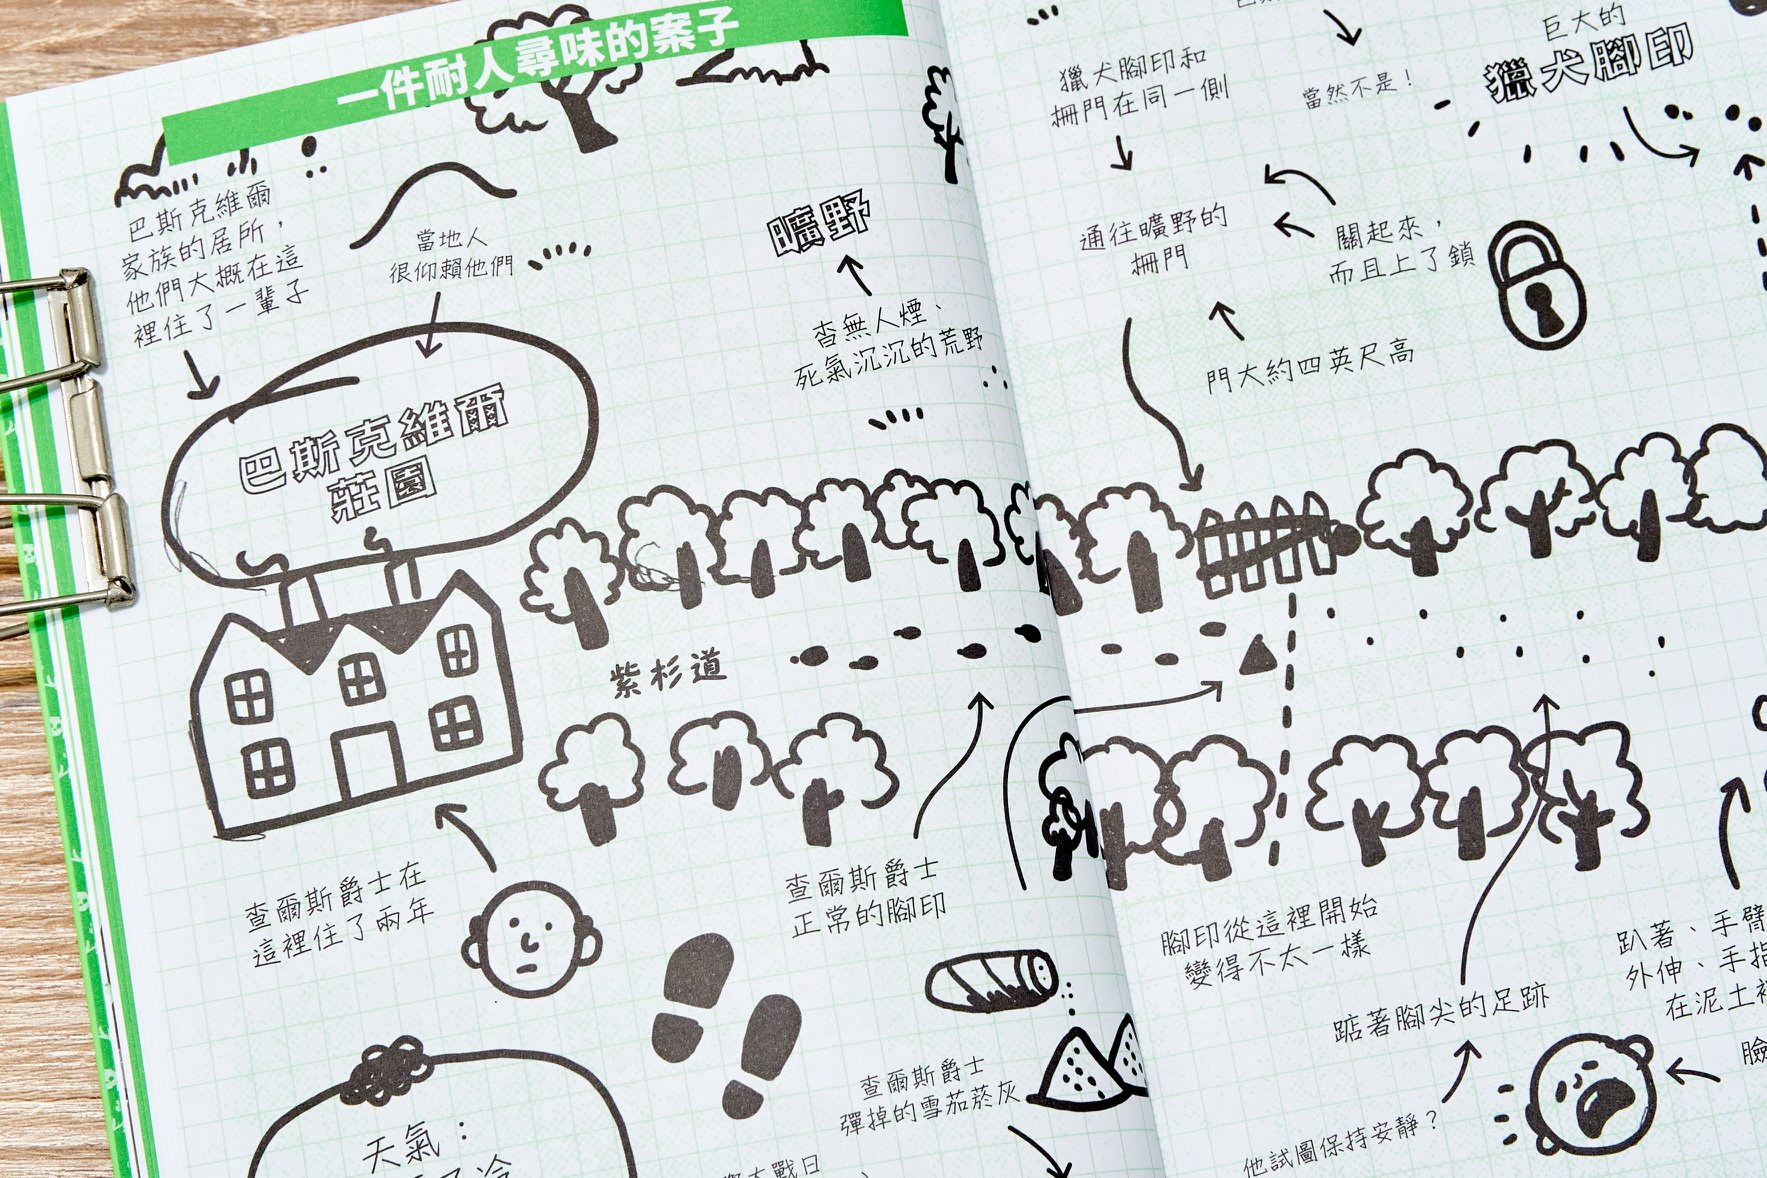 一件耐人尋味的案子
巴斯克維爾
家族的居所，
他們大概在這
裡住了一輩子
當地人
很仰賴他們
曠野
杳無人煙、
死氣沉沉的荒野
巴斯克維爾
莊園
紫杉道
查爾斯爵士在
這裡住了兩年
查爾斯爵士
正常的腳印
查爾斯爵士
彈掉的雪茄菸灰
天氣：
大戰日
獵犬腳印和
柵門在同一側
當然不是！
巨大的
獵犬腳印
通往曠野的
柵門
關起來，
而且上了鎖
門大約四英尺高
腳印從這裡開始
變得不太一樣
踮著腳尖的足跡
趴著、手臂
外伸、手指
在泥土裡
臉
他試圖保持安靜？